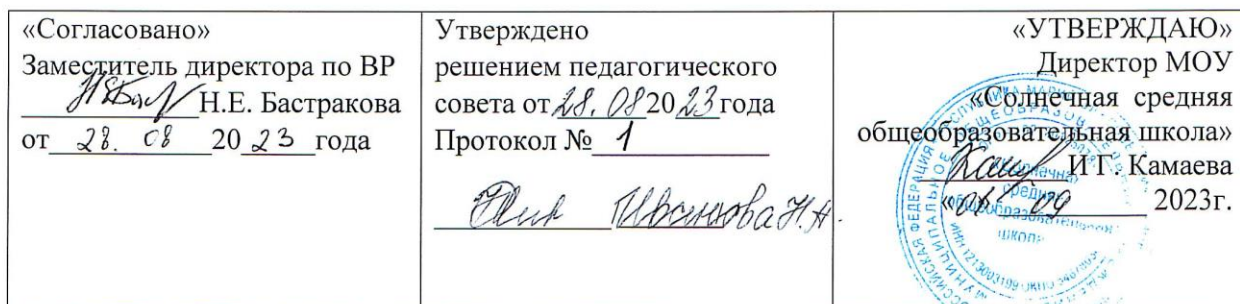 «Согласовано»
Заместитель директора по ВР
Н.Е. Бастракова
от 28. 08 20 23 года
Утверждено
решением педагогического
совета от 28. 08 20 23 года
Протокол № 1
Иванкова Н.А.
«УТВЕРЖДАЮ»
Директор МОУ
«Солнечная средняя
общеобразовательная школа»
И.Г. Камаева
«01» 09 2023г.